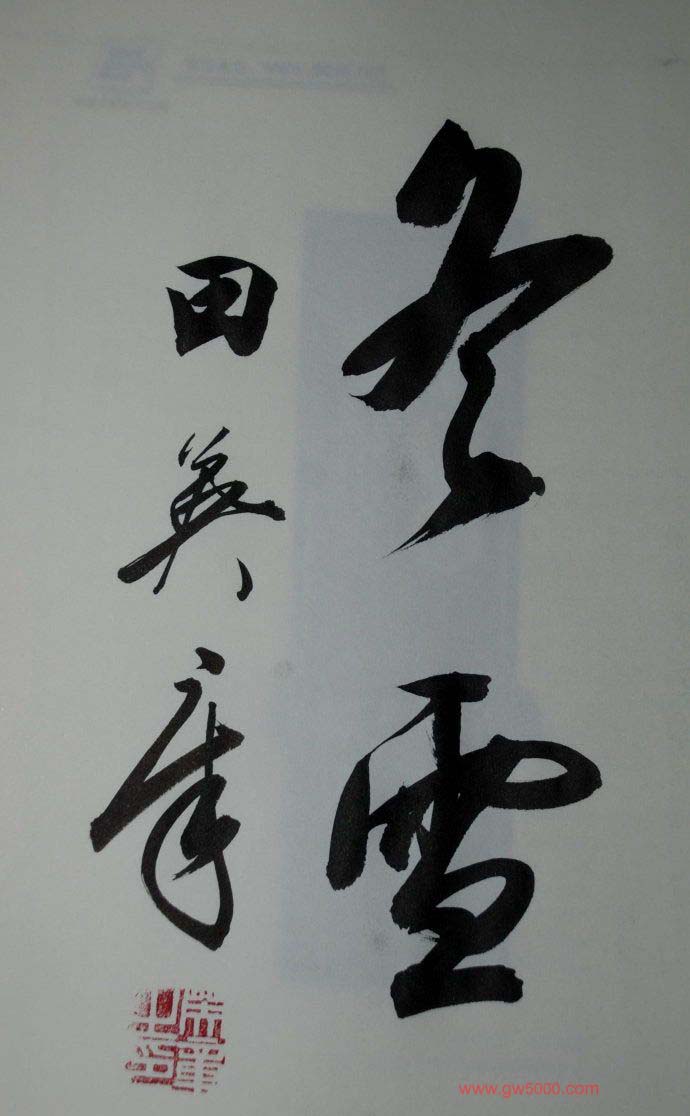 冬雪
田英章
www.gw5000.com